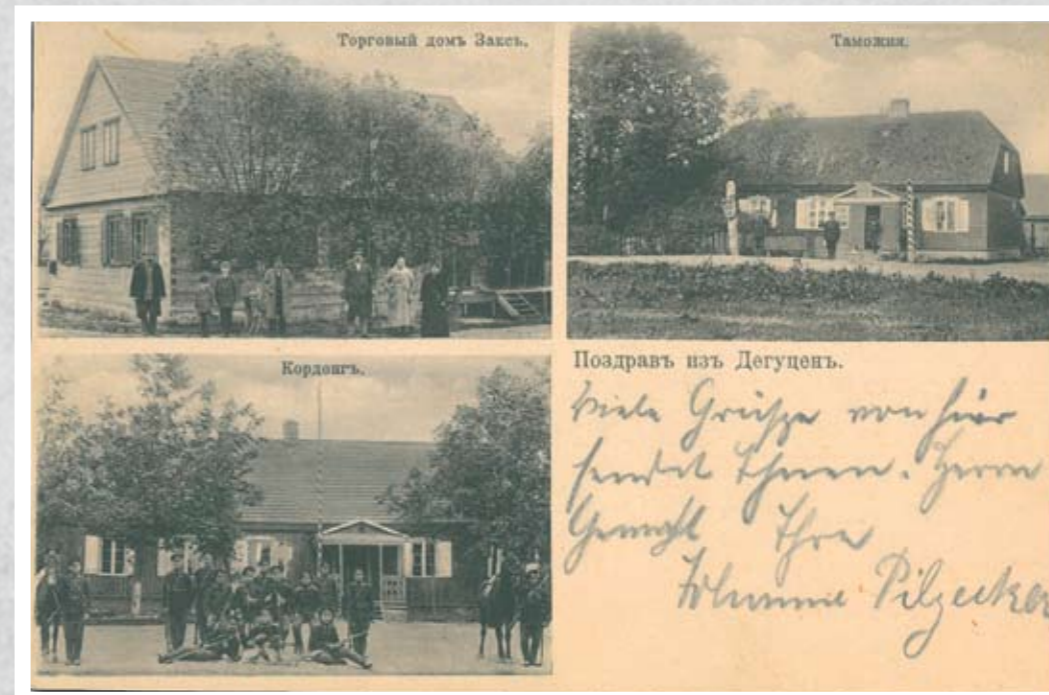 Торговый домъ Заксъ.
Таможня.
Кордонгъ.
Поздравъ изъ Дегуценъ.
Viele Grüße von hier
sendet Ihnen. Herrn
Gemahl Ihre
Pilzecker